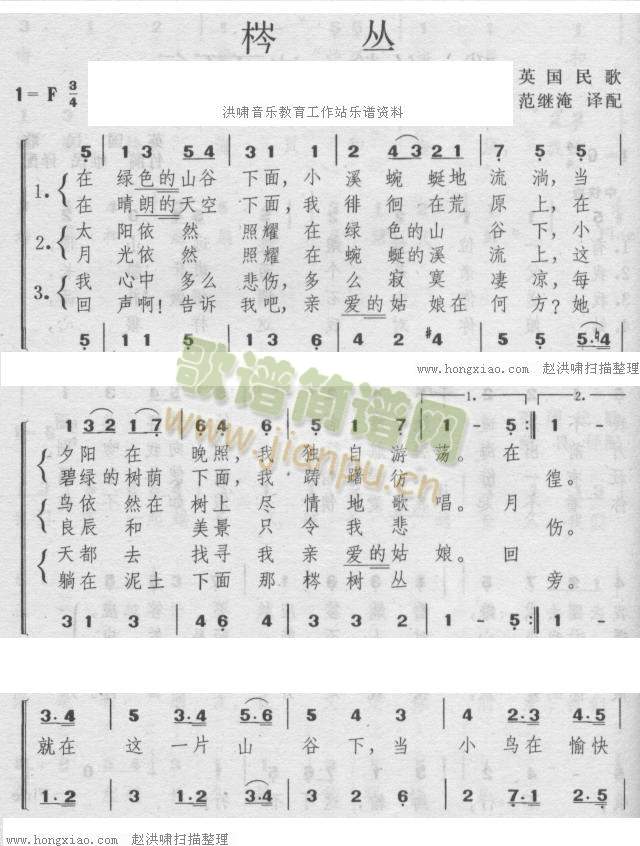 梣 丛
1=F 3/4
英国民歌
洪啸音乐教育工作站乐谱资料
范继淹 译配
5 1 3 5 4 3 1 1 2 4 3 2 1 7 5 5
1. 在 绿色的山谷 下面,小 溪 蜿 蜒地 流 淌,当
在 晴朗的天空 下面,我 徘 徊 在荒 原 上,在
2. 太 阳依 然 照耀 在 绿 色的山 谷 下,小
月 光依 然 照耀 在 蜿 蜒的溪 流 上,这
3. 我 心中 多么 悲伤,多 么 寂 寞 凄 凉,每
回 声啊!告诉 我吧,亲 爱的 姑 娘在 何 方?她
5 1 1 5 1 3 6 4 2 #4 5 5 5·4
www.hongxiao.com 赵洪啸扫描整理
歌谱简谱网
www.jianpu.cn
1. 2.
1 3 2 1 7 6 4 6 5 1 7 1 - 5 1 -
夕阳 在 晚照,我 独 自 游 荡。在
碧绿的树荫 下面,我 踌 躇 彷 徨。
鸟依 然在 树上 尽 情 地 歌 唱。月
良辰 和 美景 只 令 我 悲 伤。
天都 去 找寻 我 亲 爱的姑 娘。回
躺在 泥土 下面 那 梣 树 丛 旁。
3 1 3 4 4 2 3 3 2 1 - 5 1 -
3·4 5 3·4 5·6 5 4 3 4 2·3 4·5
就在 这 一片 山 谷 下,当 小 鸟在 愉快
1·2 3 1·2 3·4 3 2 1 2 7·1 2·5
www.hongxiao.com 赵洪啸扫描整理